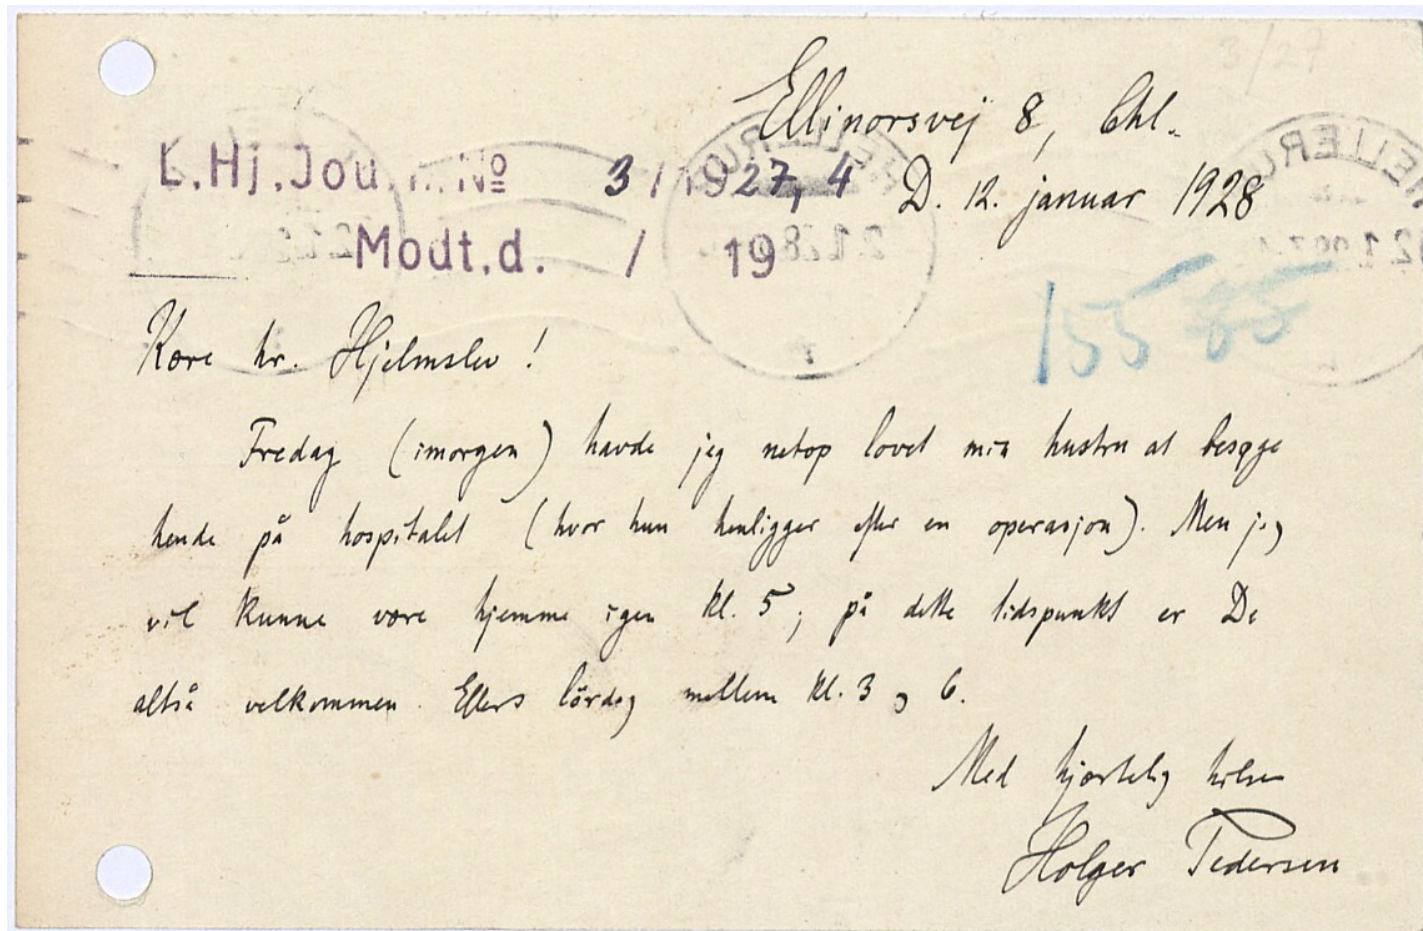 3/27
Ellinorsvej 8, Chl.
L.Hj.Jou. No 3/1927,4
D. 12. januar 1928
Modt.d. / 19
155
Kære hr. Hjelmslev!
Fredag (imorgen) havde jeg netop lovet min hustru at besøge
hende på hospitalet (hvor hun henligger efter en operasjon). Men jeg
vil kunne være hjemme igen kl. 5; på dette tidspunkt er De
altså velkommen. Ellers lördag mellem kl. 3 og 6.
Med hjærtelig hilsen
Holger Pedersen